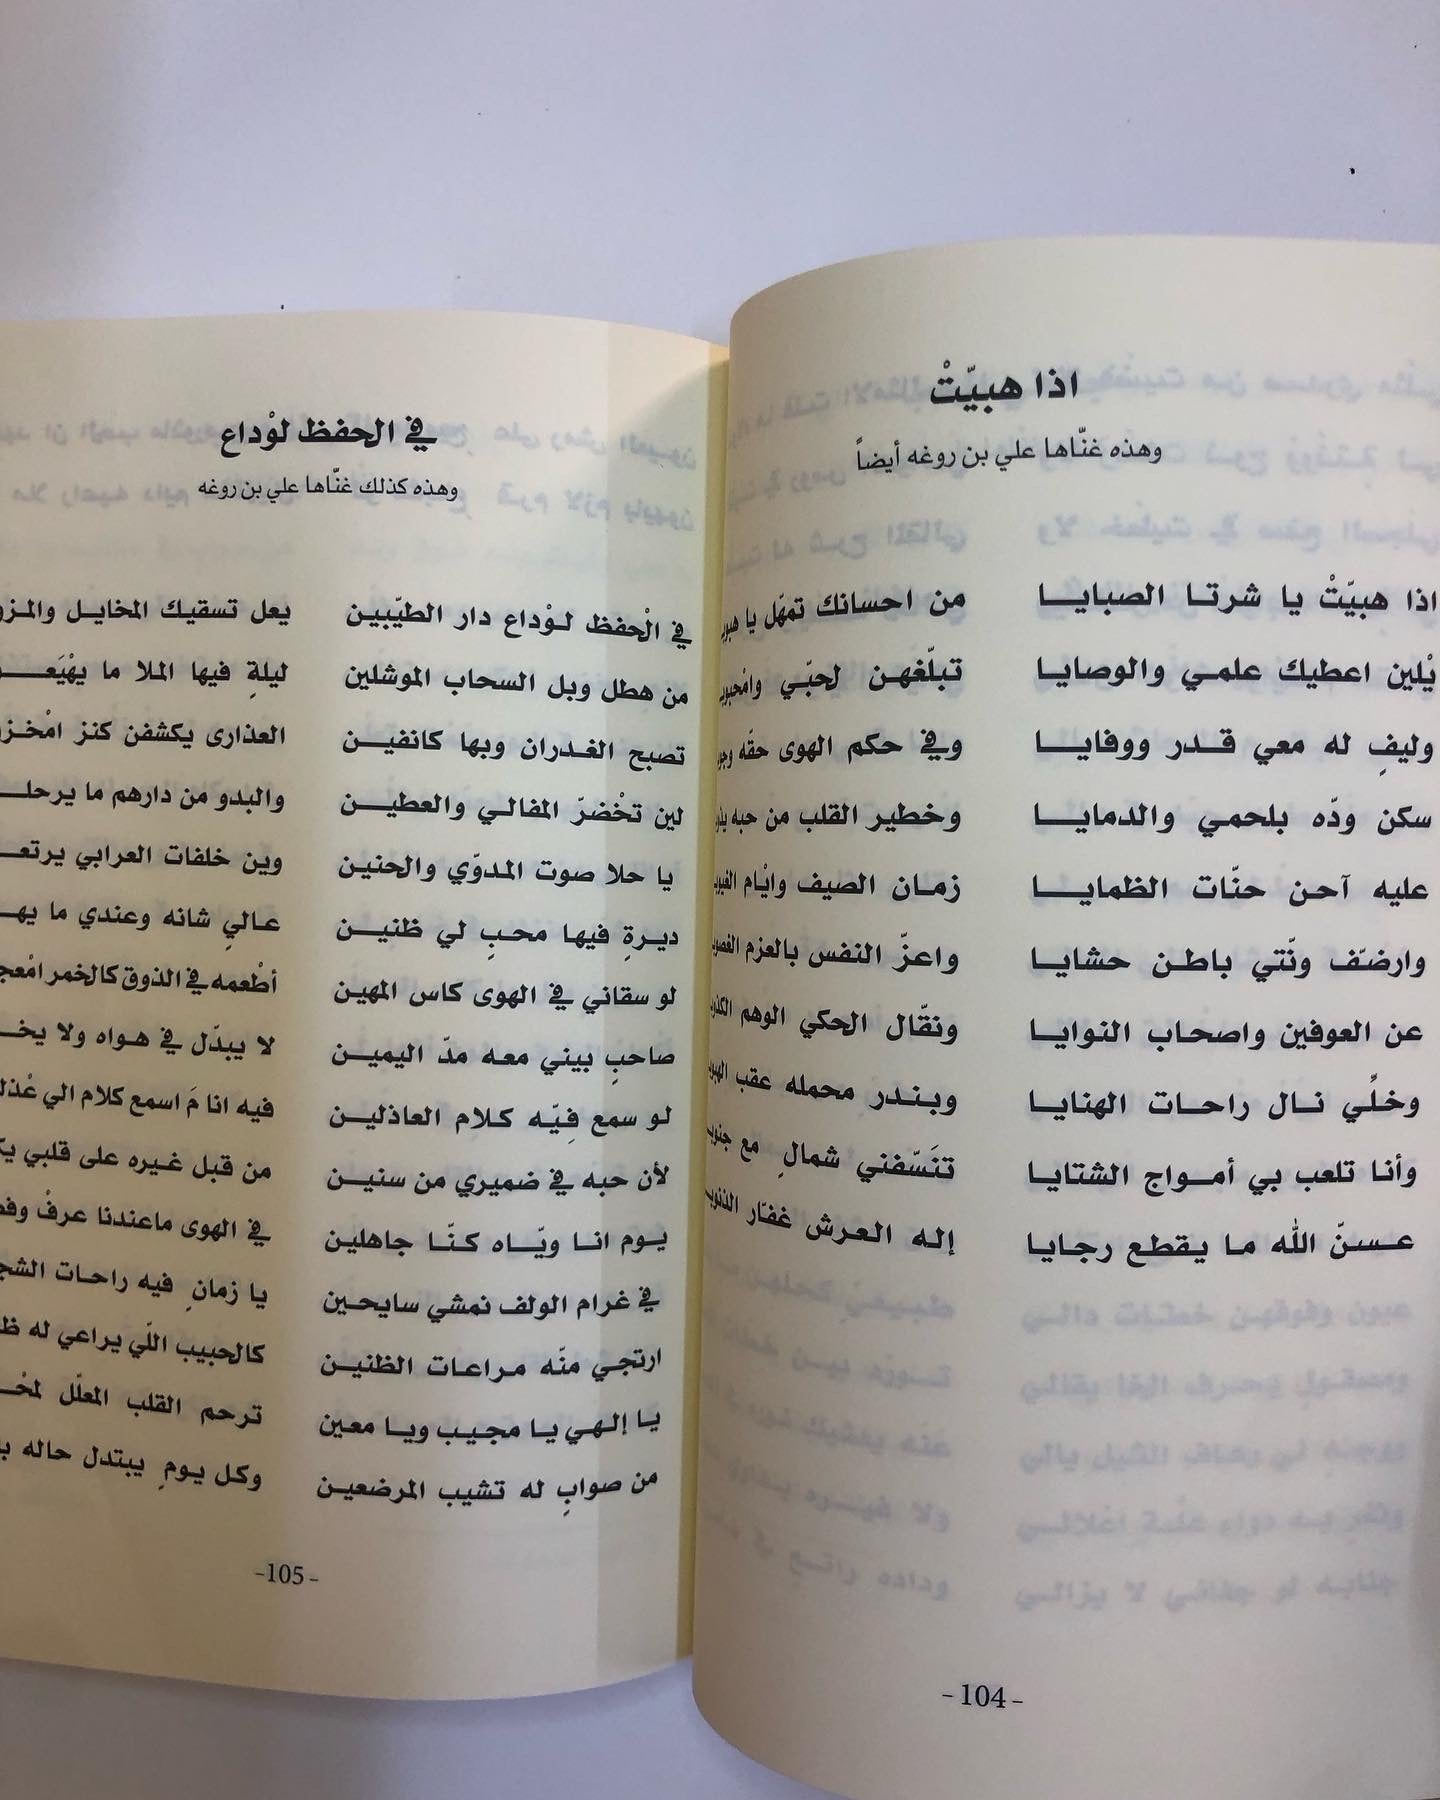 اذا هبيّتْ
وهذه غنّاها علي بن روغه أيضاً
اذا هبيّتْ يا شرتا الصبايا من احسانك تمهّل يا
يْلين اعطيك علمي والوصايا تبلّغهن لحبّي
وليفِ له معي قدر ووفايا وفي حكم الهوى حقّه
سكن ودّه بلحمي والدمايا وخطير القلب من حبه
عليه آحن حنّات الظمايا زمان الصيف وايْام
وارضف ونّتي باطن حشايا واعزّ النفس بالعزم
عن العوفين واصحاب النوايا ونقّال الحكي الوهم
وخلِّي نال راحات الهنايا وبندر محمله عقب
وأنا تلعب بي أمواج الشتايا تنَسّفني شمالِ مع
عسنّ الله ما يقطع رجايا إله العرش غفّار
-104-
في الحفظ لوْداع
وهذه كذلك غنّاها علي بن روغه
في الْحفظ لوْداع دار الطيّبين يعل تسقيك المخايل
من هطل وبل السحاب الموشلين ليلةِ فيها الملا ما
تصبح الغدران وبها كانفين العذارى يكشفن كنز
لين تخْضرّ المفالي والعطين والبدو من دارهم ما
يا حلا صوت المدوّي والحنين وين خلفات العرابي
ديرةِ فيها محبِ لي ظنين عالي شانه وعندي ما
لو سقاني في الهوى كاس المهين أطْعمه في الذوق كالخمر
صاحبِ بيني معه مدّ اليمين لا يبدّل في هواه ولا
لو سمع فيّه كلام العاذلين فيه انا مَ اسمع كلام الي
لأن حبه في ضميري من سنين من قبل غيره على قلبي
يوم انا ويّاه كنّا جاهلين في الهوى ماعندنا عرفْ
في غرام الولف نمشي سايحين يا زمانِ فيه راحات
ارتجي منّه مراعات الظنين كالحبيب اللّي يراعي له
يا إلهي يا مجيب ويا معين ترحم القلب المعلّل
من صوابِ له تشيب المرضعين وكل يومِ يبتدل حاله
-105-